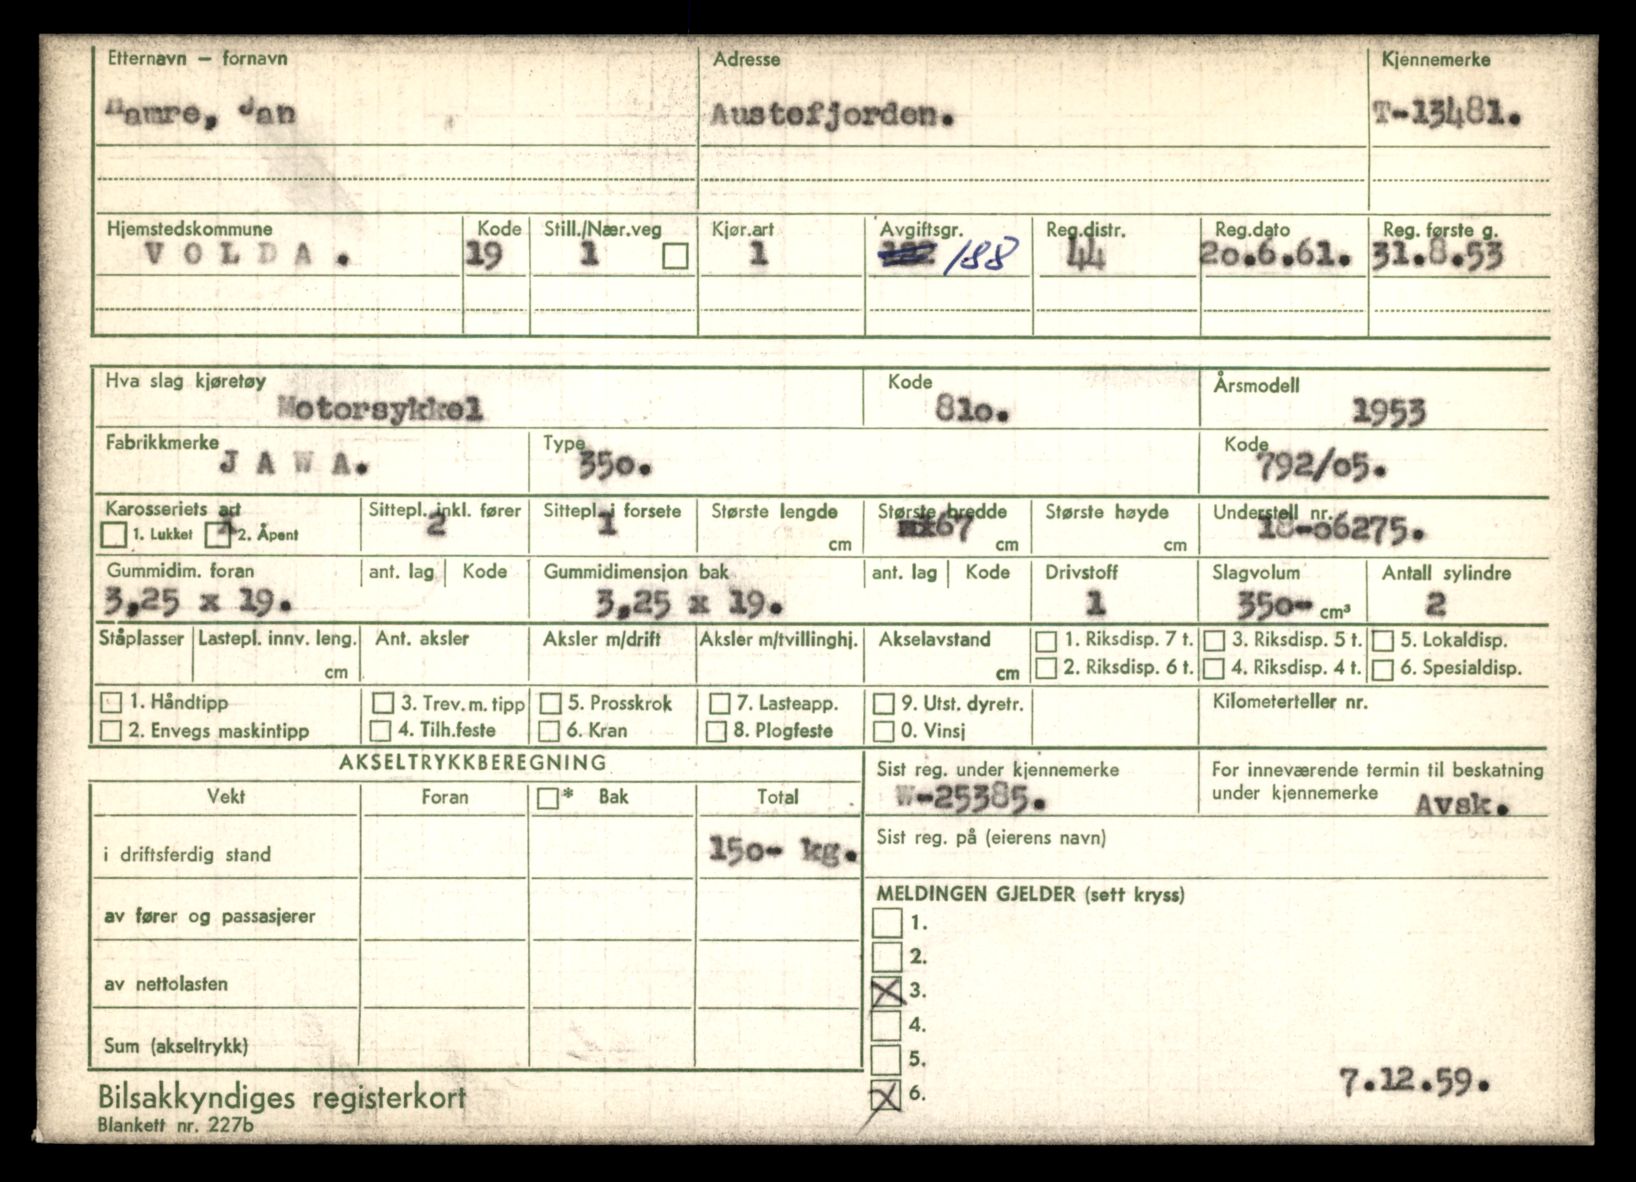 Etternavn — fornavn Adresse Kjennemerke
Hamre, Jan Austefjorden. T-13481.
Hjemstedskommune Kode Still./Nær.veg Kjør.art Avgiftsgr. Reg.distr. Reg.dato Reg. første g.
VOLDA. 19 1 1 188 44 20.6.61. 31.8.53
Hva slag kjøretøy Kode Årsmodell
Motorsykkel 81o. 1953
Fabrikkmerke Type Kode
JAWA. 35o. 792/o5.
Karosseriets art Sittepl. inkl. fører Sittepl. i forsete Største lengde Største bredde Største høyde Understell nr.
1. Lukket 2. Åpent 2 1 cm 67 cm cm 18-o6275.
Gummidim. foran ant. lag Kode Gummidimensjon bak ant. lag Kode Drivstoff Slagvolum Antall sylindre
3,25 x 19. 3,25 x 19. 1 35o- cm³ 2
Ståplasser Lastepl. innv. leng. Ant. aksler Aksler m/drift Aksler m/tvillinghj. Akselavstand 1. Riksdisp. 7 t. 3. Riksdisp. 5 t. 5. Lokaldisp.
cm cm 2. Riksdisp. 6 t. 4. Riksdisp. 4 t. 6. Spesialdisp.
1. Håndtipp 3. Trev. m. tipp 5. Prosskrok 7. Lasteapp. 9. Utst. dyretr. Kilometerteller nr.
2. Envegs maskintipp 4. Tilh.feste 6. Kran 8. Plogfeste 0. Vinsj
AKSELTRYKKBEREGNING Sist reg. under kjennemerke For inneværende termin til beskatning
Vekt Foran * Bak Total W-25385. under kjennemerke Avsk.
i driftsferdig stand 15o- kg. Sist reg. på (eierens navn)
av fører og passasjerer MELDINGEN GJELDER (sett kryss)
1.
2.
av nettolasten X 3.
4.
Sum (akseltrykk) 5.
X 6. 7.12.59.
Bilsakkyndiges registerkort
Blankett nr. 227b